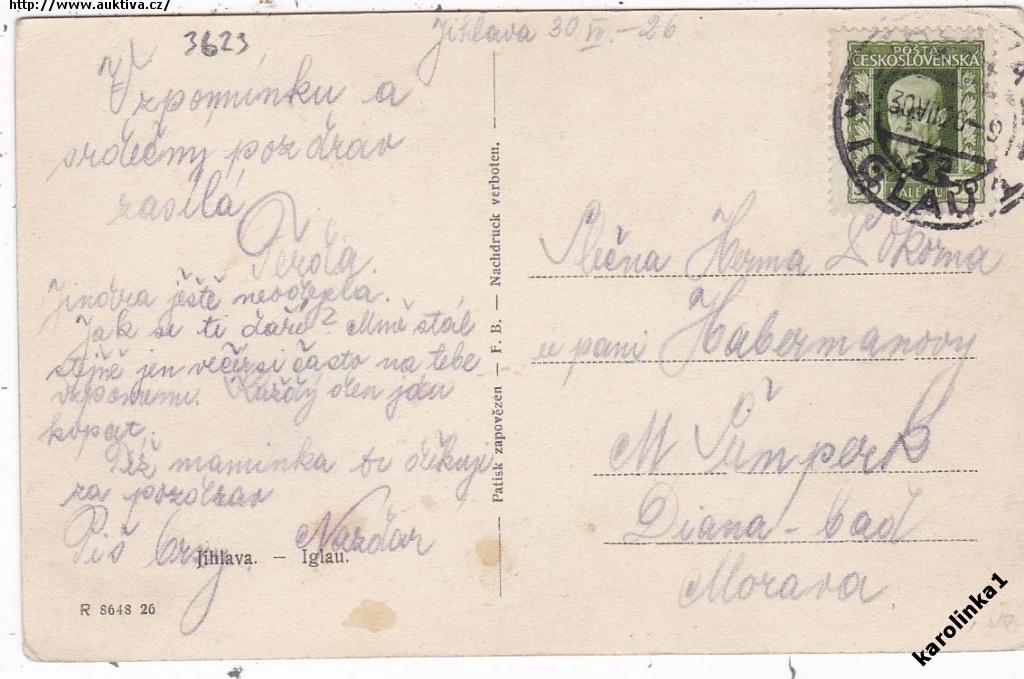 http://www.auktiva.cz/
3623
Jihlava 30 VII. - 26
Vzpomínku a
srdečný pozdrav
zasílá
Ferda.
Jindra ještě neodjela.
Jak se ti daří? Mně stál
stejně jen večer si často na tebe
vzpomenu. Každý den jdu
kopat.
Též maminka ti děkuje
za pozdrav
Piš brzy. Nazdar
Jihlava. — Iglau.
R 8648 26
Patisk zapovězen — F. B. — Nachdruck verboten.
POSTA
ČESKOSLOVENSKÁ
HALÉŘŮ
IGLAU
Slečna Herma Pokorna
u paní Habermanovy
M Šumperk
Diana-bad
Morava
karolinka1